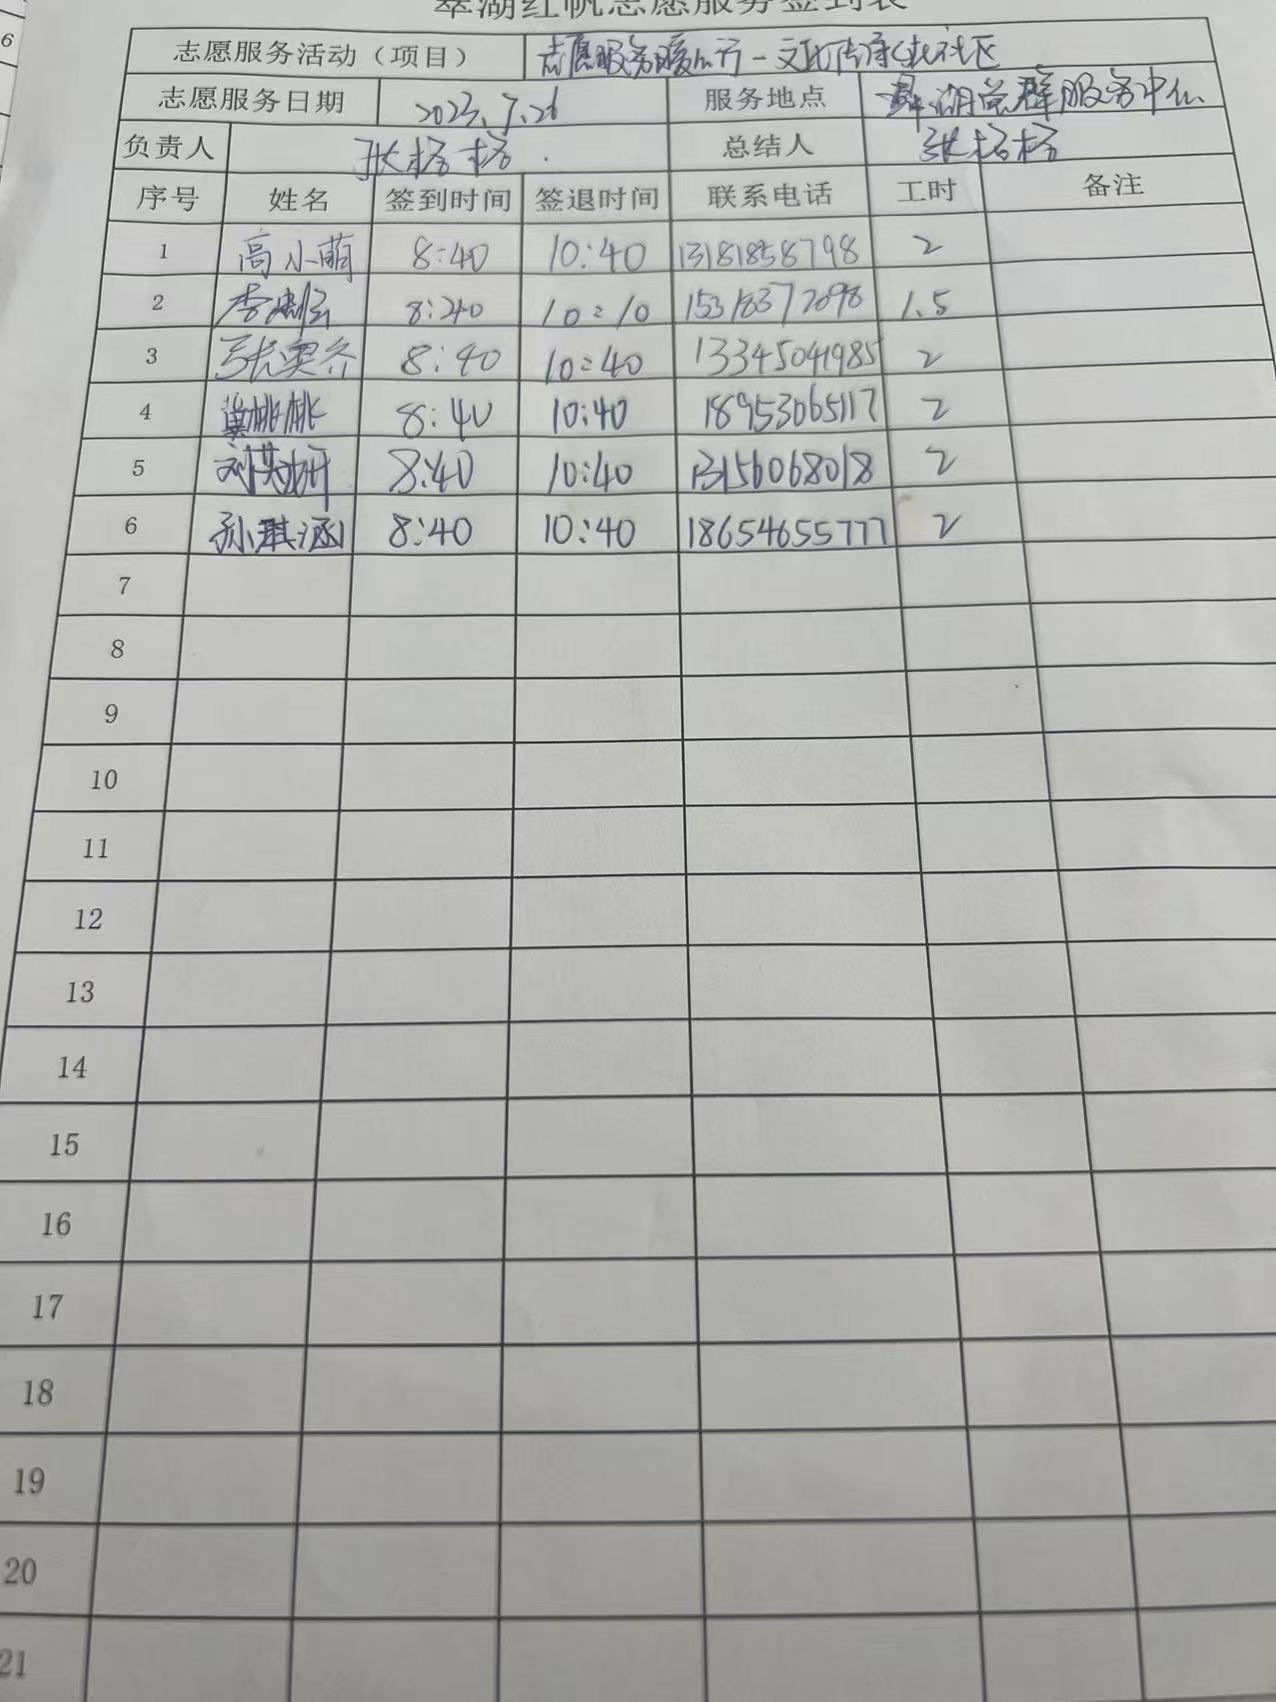 翠湖红帆志愿服务签到表
志愿服务活动（项目） 志愿服务暖心行-文化传承进社区
志愿服务日期 2023.7.26 服务地点 翠湖党群服务中心
负责人 张格格 总结人 张格格
序号 姓名 签到时间 签退时间 联系电话 工时 备注
1 高小萌 8:40 10:40 13181858798 2
2 8:40 10:10 15318372098 1.5
3 8:40 10:40 13345041985 2
4 冀桃桃 8:40 10:40 18953065117 2
5 刘英妍 8:40 10:40 13156068018 2
6 孙琪涵 8:40 10:40 18654655777 2
7
8
9
10
11
12
13
14
15
16
17
18
19
20
21
6